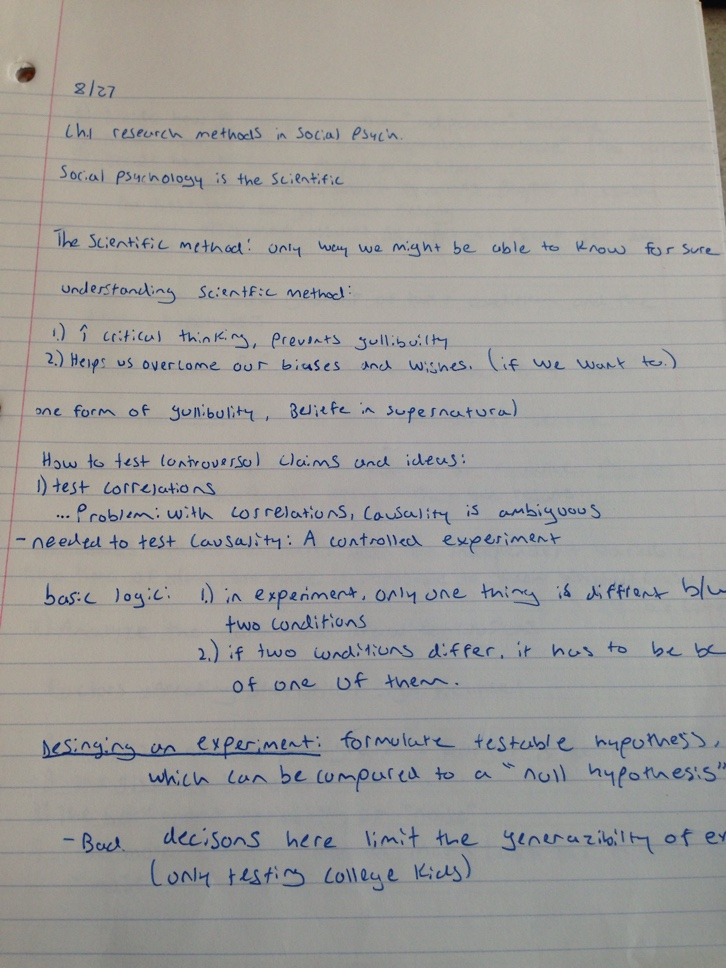 8/27
Ch.1 research methods in Social Psych.
Social psychology is the scientific
The scientific method: only way we might be able to know for sure
understanding scientfic method:
1.) ↑ critical thinking, prevents gullibuilty
2.) Helps us overcome our biases and wishes. (if we want to.)
one form of gullibulity, Beliefe in supernatural
How to test controversol claims and ideas:
1) test correlations
... Problem: with correlations, causality is ambiguous
- needed to test causality: A controlled experiment
basic logic: 1.) in experiment, only one thing is diffrent b/w
two conditions
2.) if two conditions differ, it has to be bc
of one of them.
Desinging an experiment: formulate testable hypothess,
which can be compared to a "null hypothesis"
- Bad decisons here limit the generazibilty of ex
(only testing college kids)